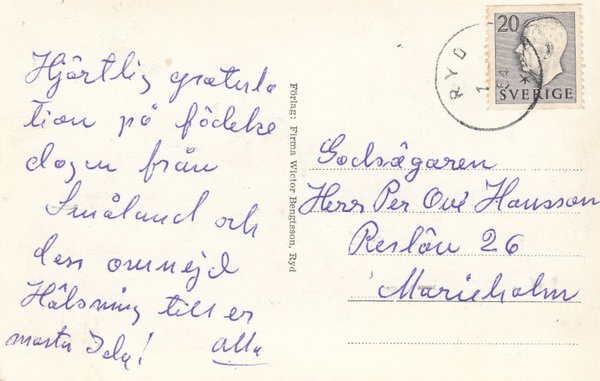 Hjärtlig gratula
tion på födelse
dagen från
Småland och
dess omnejd
Hälsning till er
alla
Förlag: Firma Wictor Bengtsson, Ryd
RYD
1
54
20
SVERIGE
Godsägaren
Herr Per Ove Hansson
Reslöv 26
Marieholm